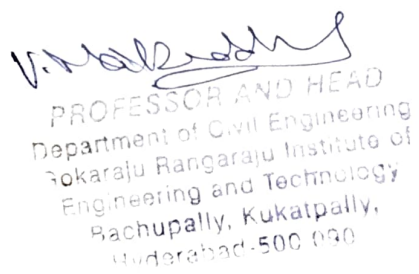 PROFESSOR AND HEAD
Department of Civil Engineering
Gokaraju Rangaraju Institute of
Engineering and Technology
Bachupally, Kukatpally,
Hyderabad-500 090